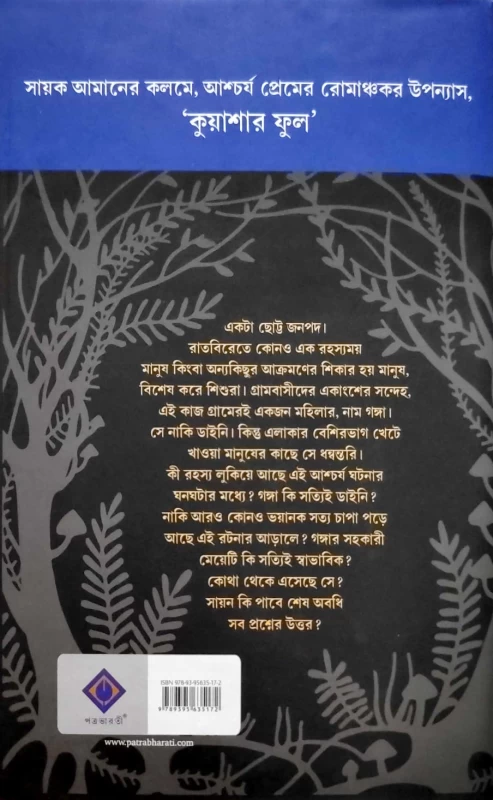 সায়ক আমানের কলমে, আশ্চর্য প্রেমের রোমাঞ্চকর উপন্যাস,
‘কুয়াশার ফুল’
একটা ছোট্ট জনপদ।
রাতবিরেতে কোনও এক রহস্যময়
মানুষ কিংবা অন্যকিছুর আক্রমণের শিকার হয় মানুষ,
বিশেষ করে শিশুরা। গ্রামবাসীদের একাংশের সন্দেহ,
এই কাজ গ্রামেরই একজন মহিলার, নাম গঙ্গা।
সে নাকি ডাইনি। কিন্তু এলাকার বেশিরভাগ খেটে
খাওয়া মানুষের কাছে সে ধন্বন্তরি।
কী রহস্য লুকিয়ে আছে এই আশ্চর্য ঘটনার
ঘনঘটার মধ্যে? গঙ্গা কি সত্যিই ডাইনি?
নাকি আরও কোনও ভয়ানক সত্য চাপা পড়ে
আছে এই রটনার আড়ালে? গঙ্গার সহকারী
মেয়েটি কি সত্যিই স্বাভাবিক?
কোথা থেকে এসেছে সে?
সায়ন কি পাবে শেষ অবধি
সব প্রশ্নের উত্তর?
পত্রভারতী®
ISBN 978-93-95635-17-2
9789395635172
www.patrabharati.com